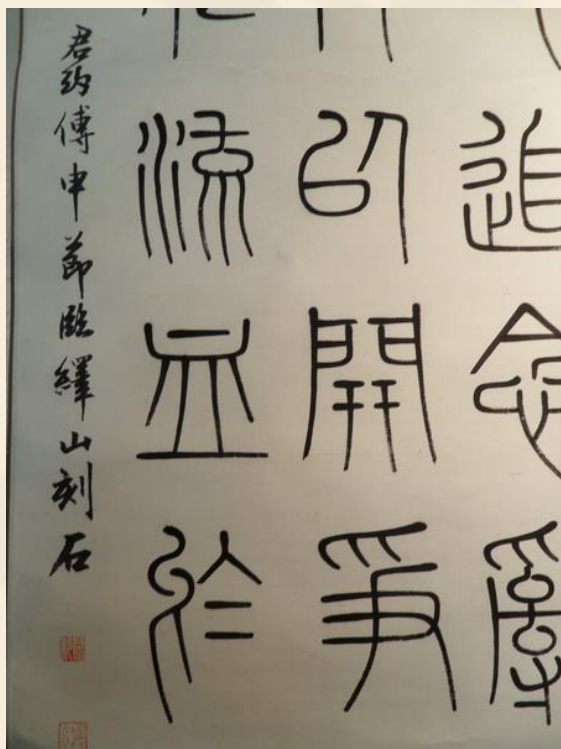 追念亂
以開爭
流血於
君約傅申節臨繹山刻石